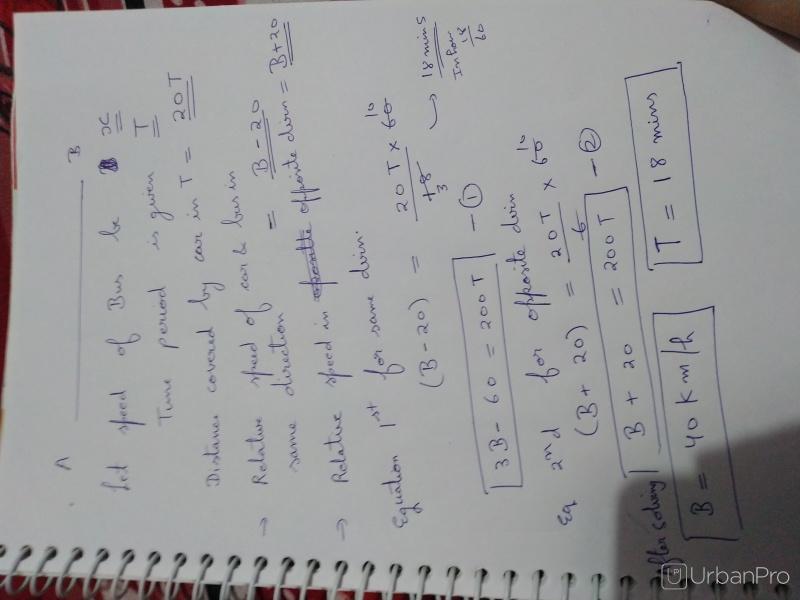 A B
Let speed of Bus be x
Time period is given T
Distance covered by car in T = 20T
→ Relative speed of car & bus in
same direction = B - 20
→ Relative speed in opposite dirn = B+20
Equation 1st for same dirn.
(B - 20) = 20T × 60 10 / 18 3 → 18 mins
In hour 18/60
3B - 60 = 200T - ①
Eq 2nd for opposite dirn
(B + 20) = 20T / 6 × 60 10
B + 20 = 200T - ②
After solving
B = 40 Km/h T = 18 mins
UrbanPro